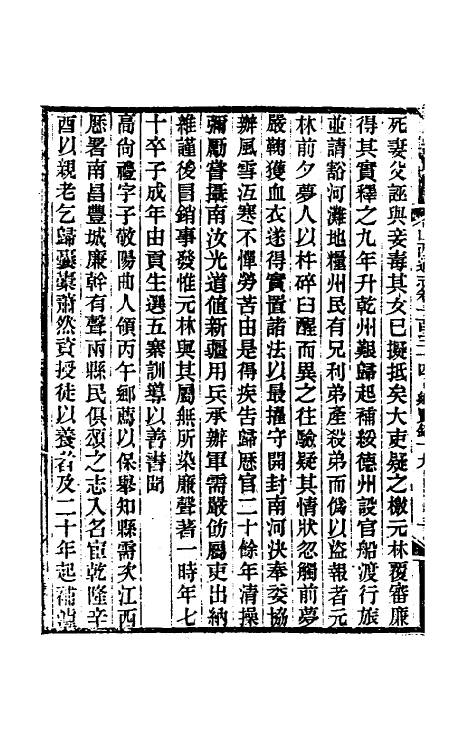 死妻父誣與妾毒其女已擬抵矣大吏疑之檄元林覆審廉
得其實釋之九年升乾州艱歸起補綏德州設官船渡行旅
並請豁河灘地糧州民有兄利弟產殺弟而僞以盜報者元
林前夕夢人以杵碎臼醒而異之往驗疑其情狀忽觸前夢
嚴鞫獲血衣遂得實置諸法以最擢守開封南河決奉委協
辦風雪沍寒不憚勞苦由是得疾告歸歷官二十餘年清操
彌勵嘗攝南汝光道值新疆用兵承辦軍需嚴飭屬吏出納
維謹後冒銷事發惟元林與其屬無所染廉聲著一時年七
十卒子成年由貢生選五寨訓導以善書聞
高尙禮字子敬陽曲人領丙午鄉薦以保舉知縣需次江西
歷署南昌豐城廉幹有聲兩縣民俱頌之志入名宦乾隆辛
酉以親老乞歸囊橐蕭然資授徒以養者及二十年起補